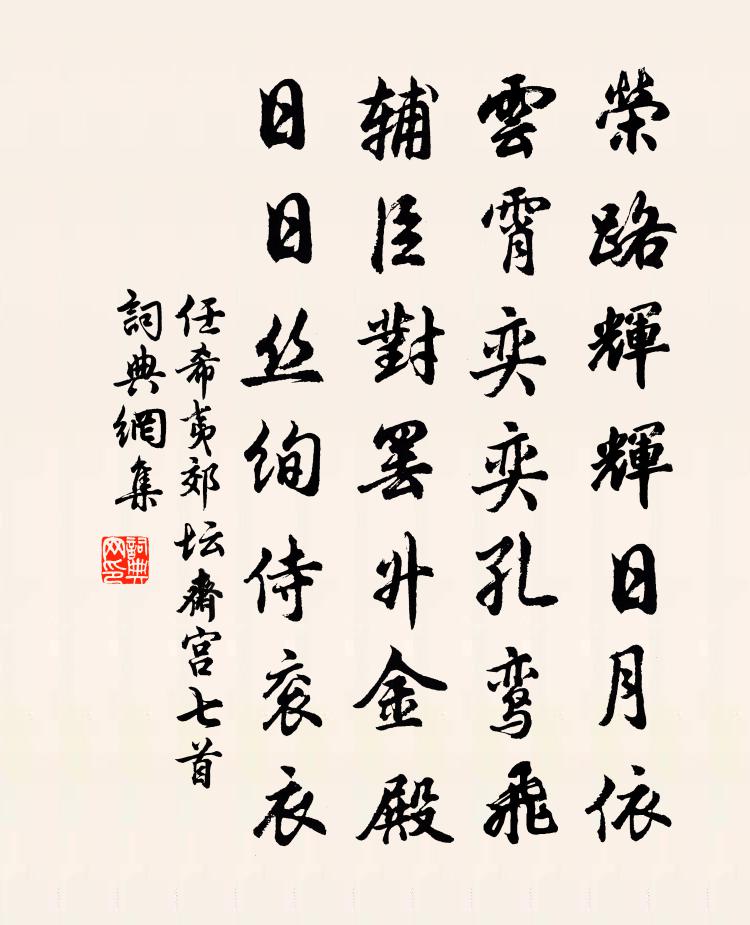 榮路輝輝日月依
雲霄奕奕孔鸾飛
辅臣對罢升金殿
日日丝绚侍衮衣
任希夷郊坛齋宫七首
詞典網集
詞典网印